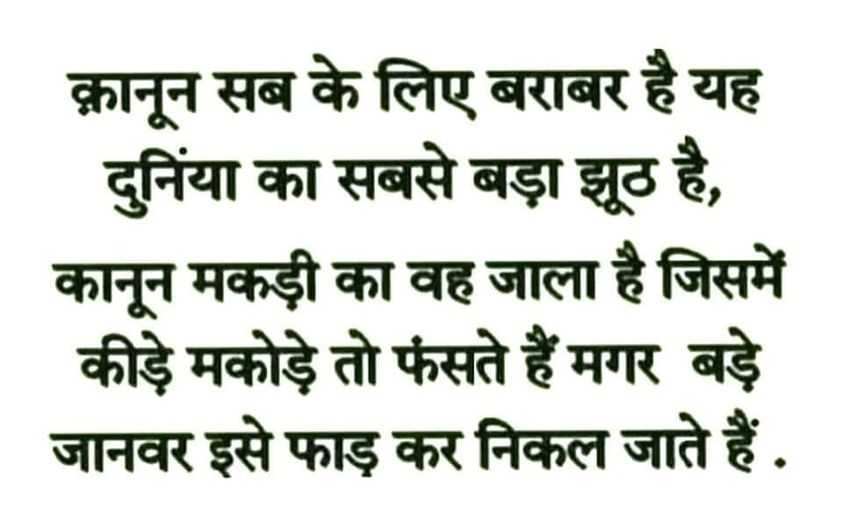 क़ानून सब के लिए बराबर है यह
दुनिंया का सबसे बड़ा झूठ है,
कानून मकड़ी का वह जाला है जिसमें
कीड़े मकोड़े तो फंसते हैं मगर बड़े
जानवर इसे फाड़ कर निकल जाते हैं .